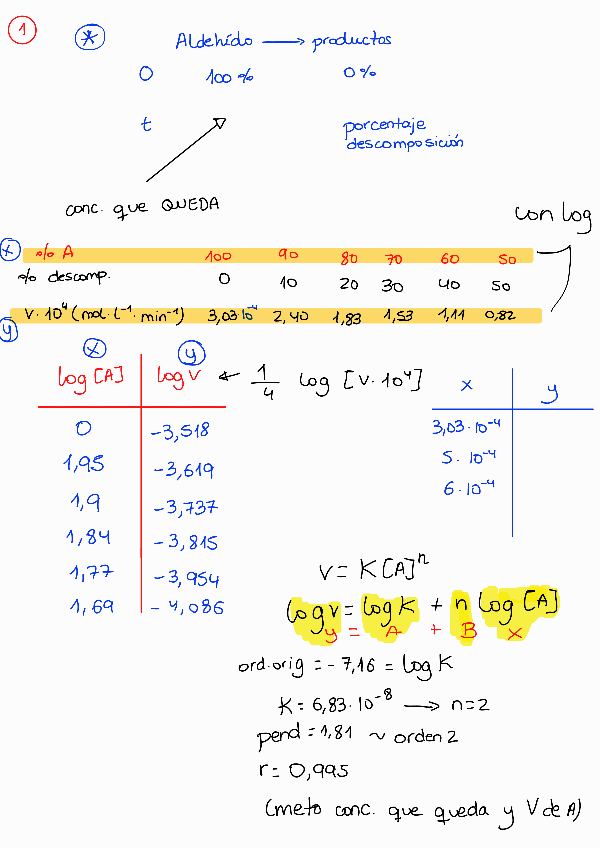 1 * Aldehído → productos
0 100% 0%
t porcentaje
descomposición
conc. que QUEDA
con log
x % A 100 90 80 70 60 50
% descomp. 0 10 20 30 40 50
y V·10⁴ (mol·L⁻¹·min⁻¹) 3,03·10⁻⁴ 2,40 1,83 1,53 1,11 0,82
x y
log [A] log V ← 1/4 log [V·10⁴]
0 -3,518
1,95 -3,619
1,9 -3,737
1,84 -3,815
1,77 -3,954
1,69 -4,086
x y
3,03·10⁻⁴
5·10⁻⁴
6·10⁻⁴
V = K[A]ⁿ
log V = log K + n log [A]
y = A + B x
ord.orig = -7,16 = log K
K = 6,83·10⁻⁸ → n=2
pend = 1,81 ~ orden 2
r = 0,995
(meto conc. que queda y V de A)